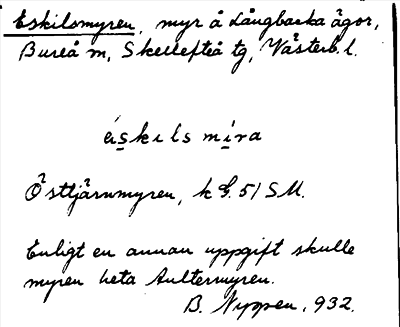 Eskilsmyren, myr å Långbacka ägor,
Bureå m, Skellefteå tg, Västerb. l.
éiskils mira
Östtjärnmyren, k G. 51 SM.
Enligt en annan uppgift skulle
myren heta Aultermyren.
B. Nyppen, 932.